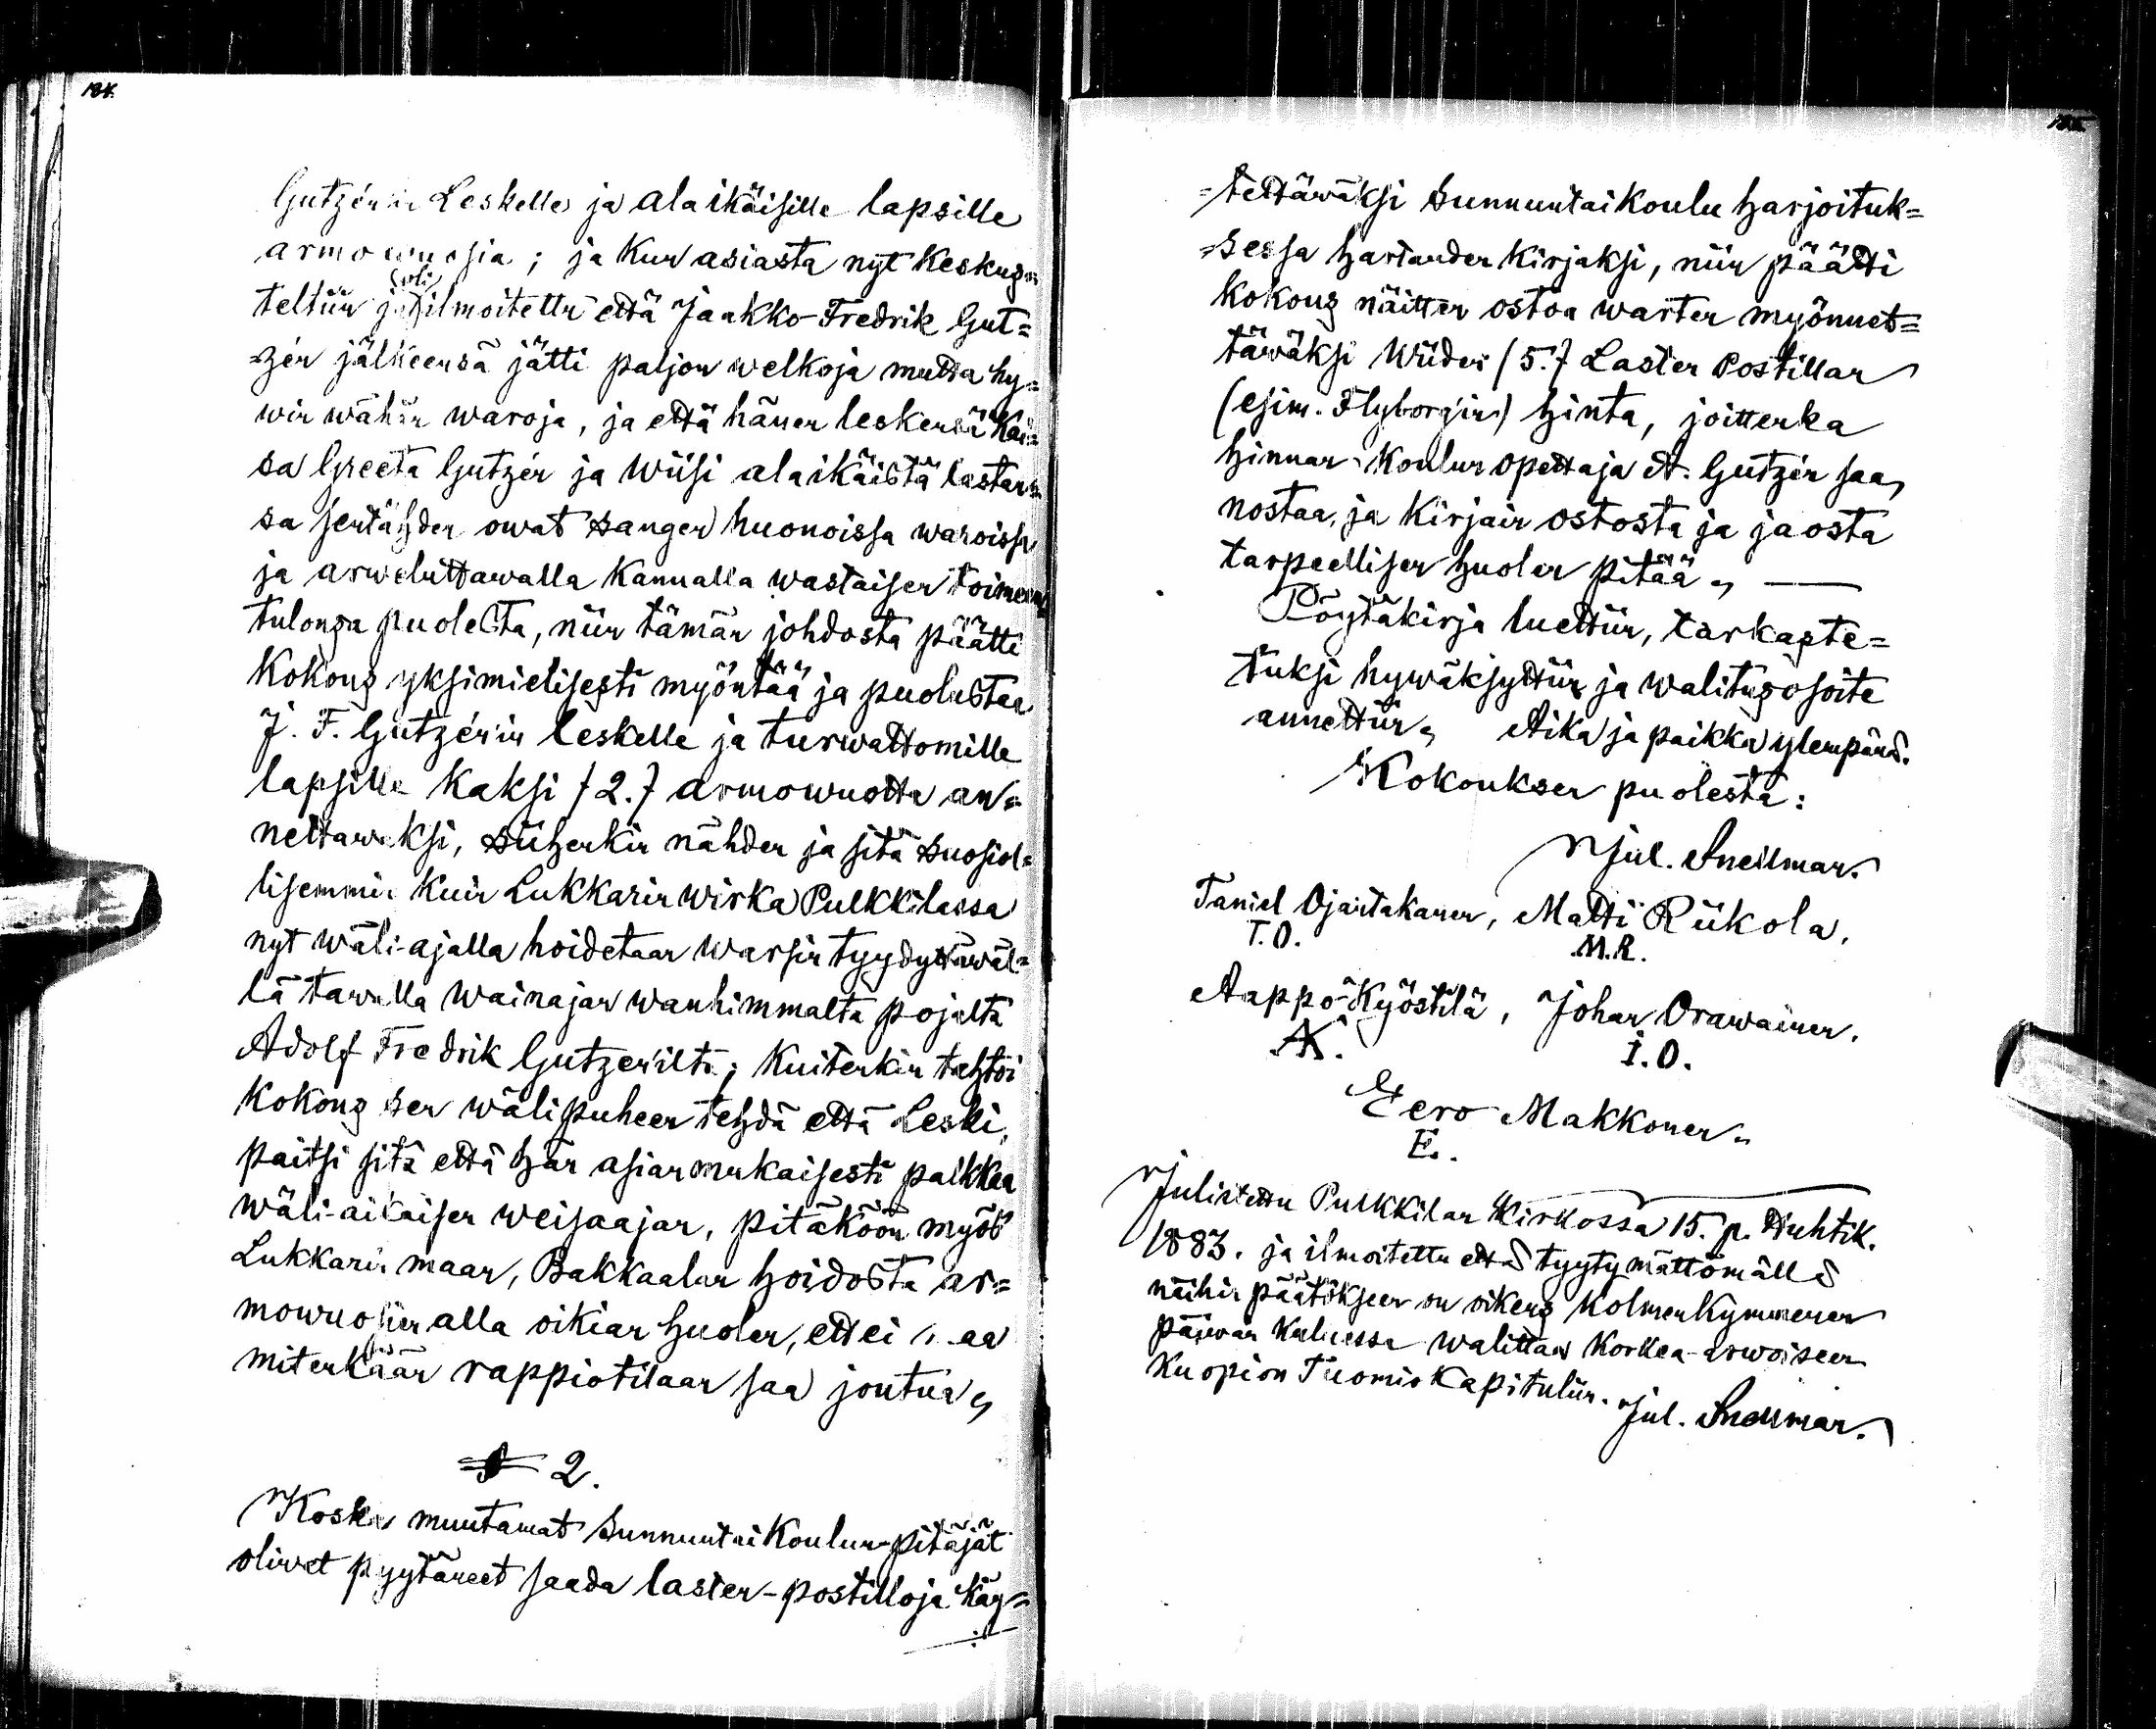 184.
Gutzénin Leskelle ja alaikäisille lapsille
armowuosia; ja kun asiasta nyt keskus=
teltiin ja oli ilmoitettu että Jaakko Fredrik Gut=
=zén jälkeensä jätti paljon welkoja mutta hy=
win wähän waroja, ja että hänen leskensä Kai=
sa Greeta Gutzén ja wiisi alaikäistä lastan=
sa sentähden owat sangen huonoissa waroissa
ja arweluttawalla kannalla wastaisen toimeen=
tulonsa puolesta, niin tämän johdosta päätti
Kokous yksimielisesti myöntää ja puolustaa
J. F. Gutzénin leskelle ja turwattomille
lapsille kaksi (2.) armowuotta an=
nettawaksi, siihenkin nähden ja sitä suosiol=
lisemmin kuin Lukkarin wirka Pulkkilassa
nyt wäli-ajalla hoidetaan warsin tyydyttäwäl=
lä tawalla wainajan wanhimmalta pojalta
Adolf Fredrik Gutzenilta; kuitenkin tahtoi
Kokous sen wälipuheen tehdä että Leski,
paitsi sitä että hän asianmukaisesti palkkaa
wäli-aikaisen weisaajan, pitäköön myös
Lukkarin maan, Bakkaalan hoidosta ar=
mowuosien alla oikian huolen, ettei maa
mitenkään rappiotilaan saa joutua,
§ 2.
Koska muutamat Sunnuntaikoulun-pitäjät
oliwat pyytäneet saada lasten-postilloja käy=
185.
=tettäwäksi Sunnuntaikoulu harjoituk=
=sessa hartauden kirjaksi, niin päätti
Kokous näitten ostoa warten myönnet=
täwäksi Wiiden (5.) Lasten Postillan
(esim. Flyborgin) hinta, joittenka
hinnan Koulun opettaja A. Gutzén saa
nostaa, ja kirjain ostosta ja jaosta
tarpeellisen huolen pitää,
Pöytäkirja luettiin, tarkaste=
tuksi hywäksyttiin ja walitusosoite
annettiin, Aika ja paikka ylempänä.
Kokouksen puolesta:
Jul. Snellman.
Taniel Ojantakanen, Matti Riikola.
T.O. M.R.
Aappo Kyöstilä, Johan Orawainen.
A. I.O.
Eero Makkonen.
E.
Julistettu Pulkkilan Kirkossa 15. p. Huhtik.
1883. ja ilmoitettu että tyytymättömällä
näihin päätöksiin on oikeus Kolmenkymmenen
päiwän kuluessa walittaa Korkea-arwoiseen
Kuopion Tuomiokapituliin. Jul. Snellman.